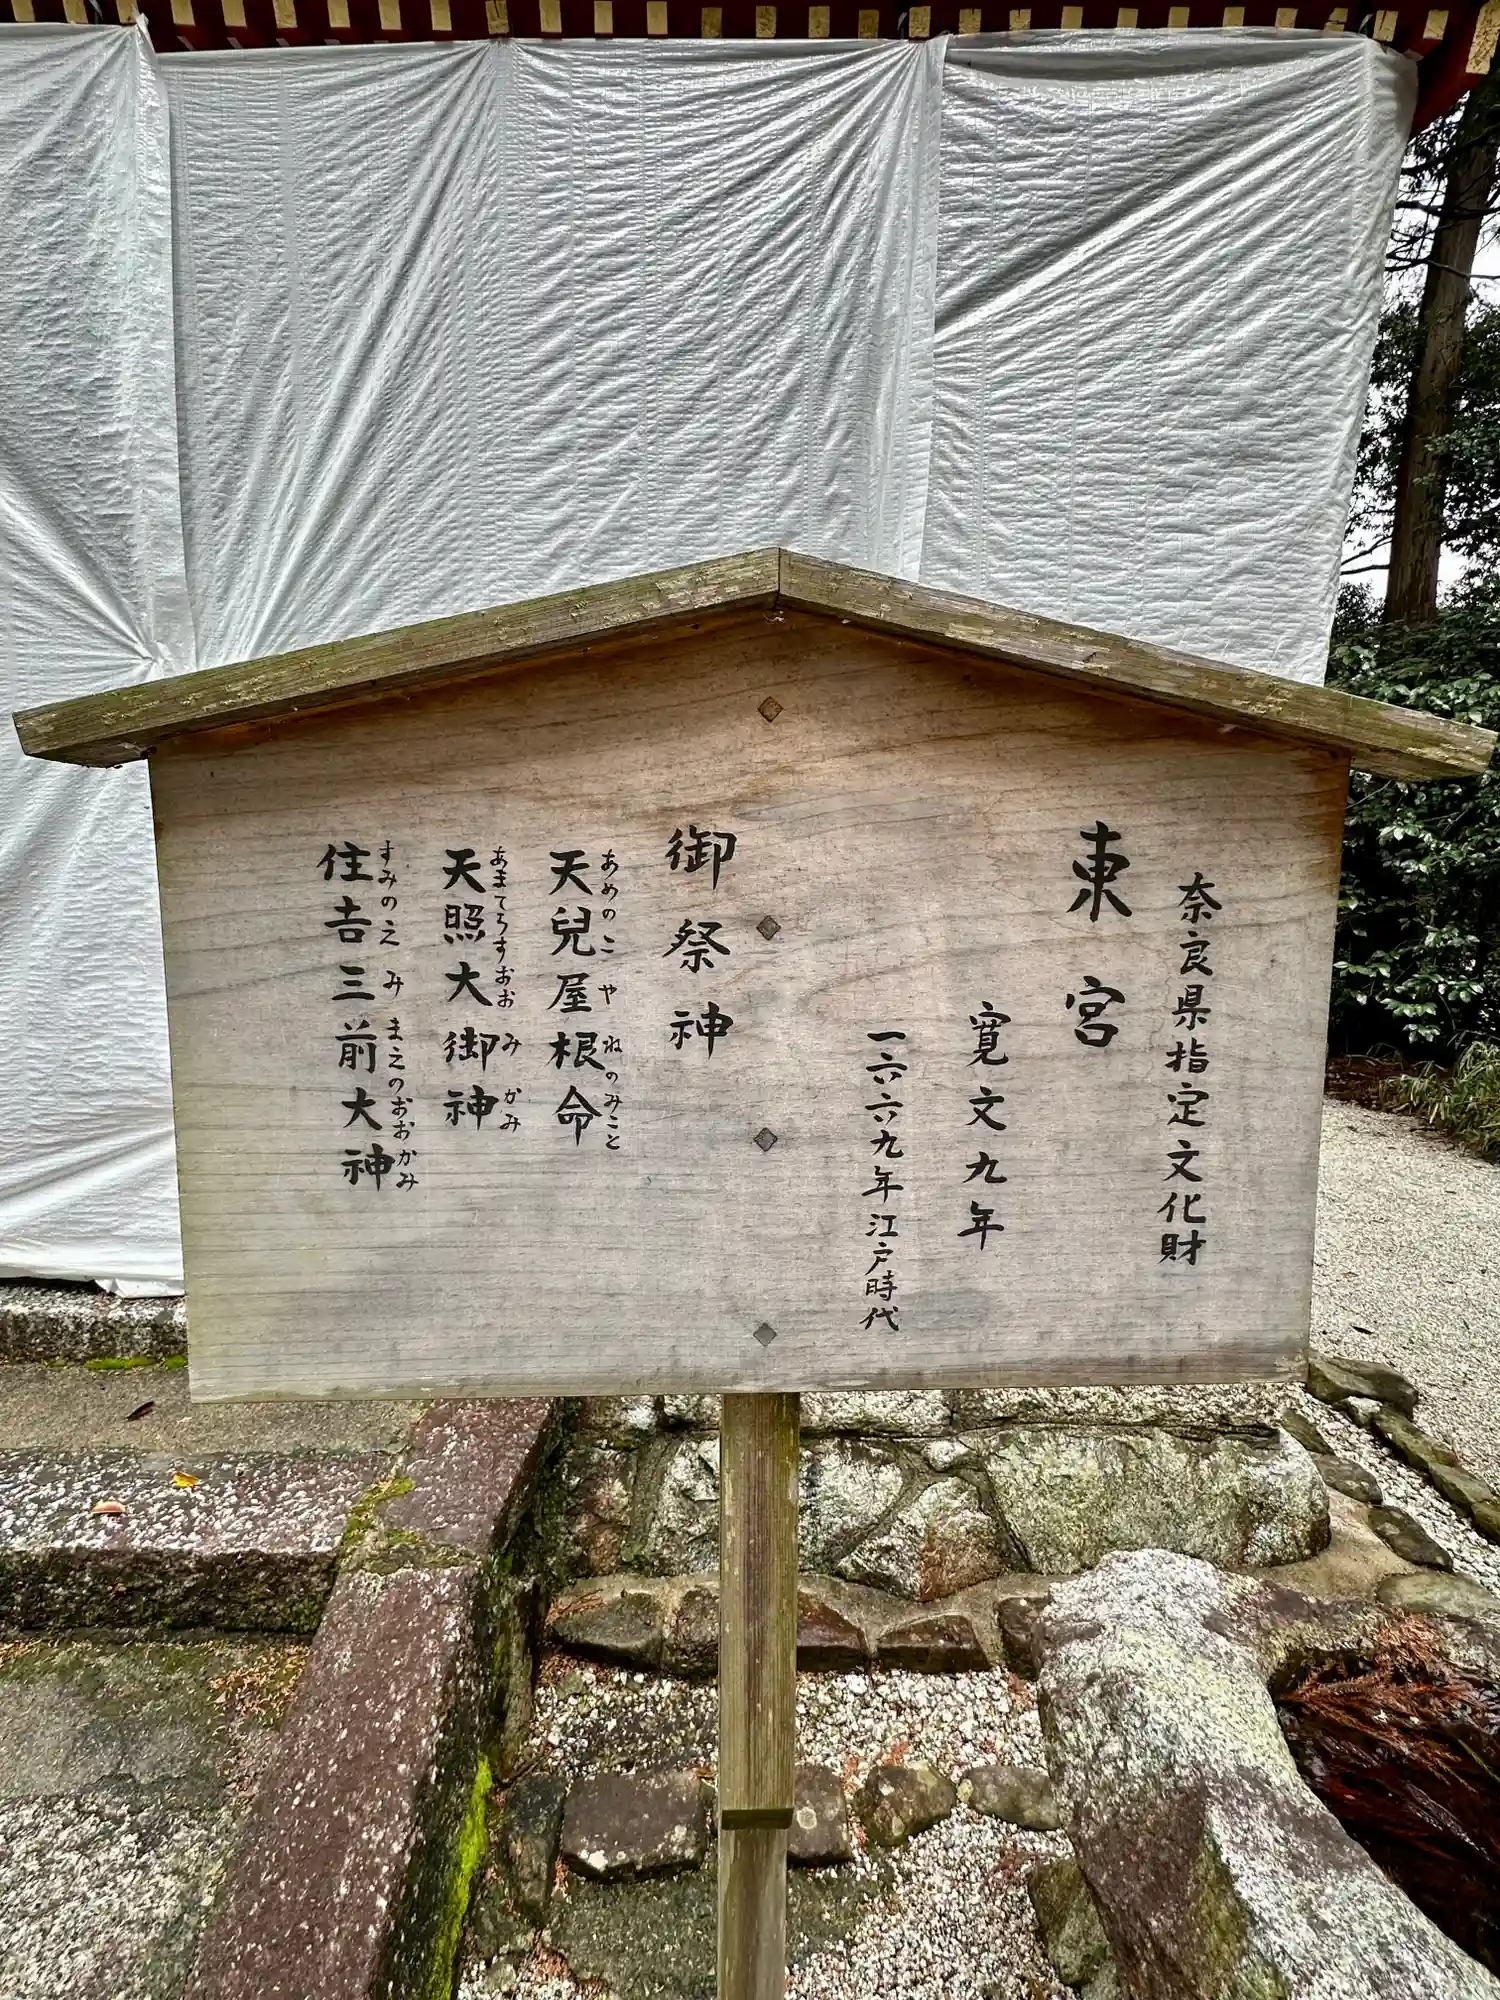 奈良県指定文化財
東宮
寛文九年
一六六九年江戸時代
御祭神
あめのこやねのみこと
天兒屋根命
あまてらすおおみかみ
天照大御神
すみのえみまえのおおかみ
住吉三前大神